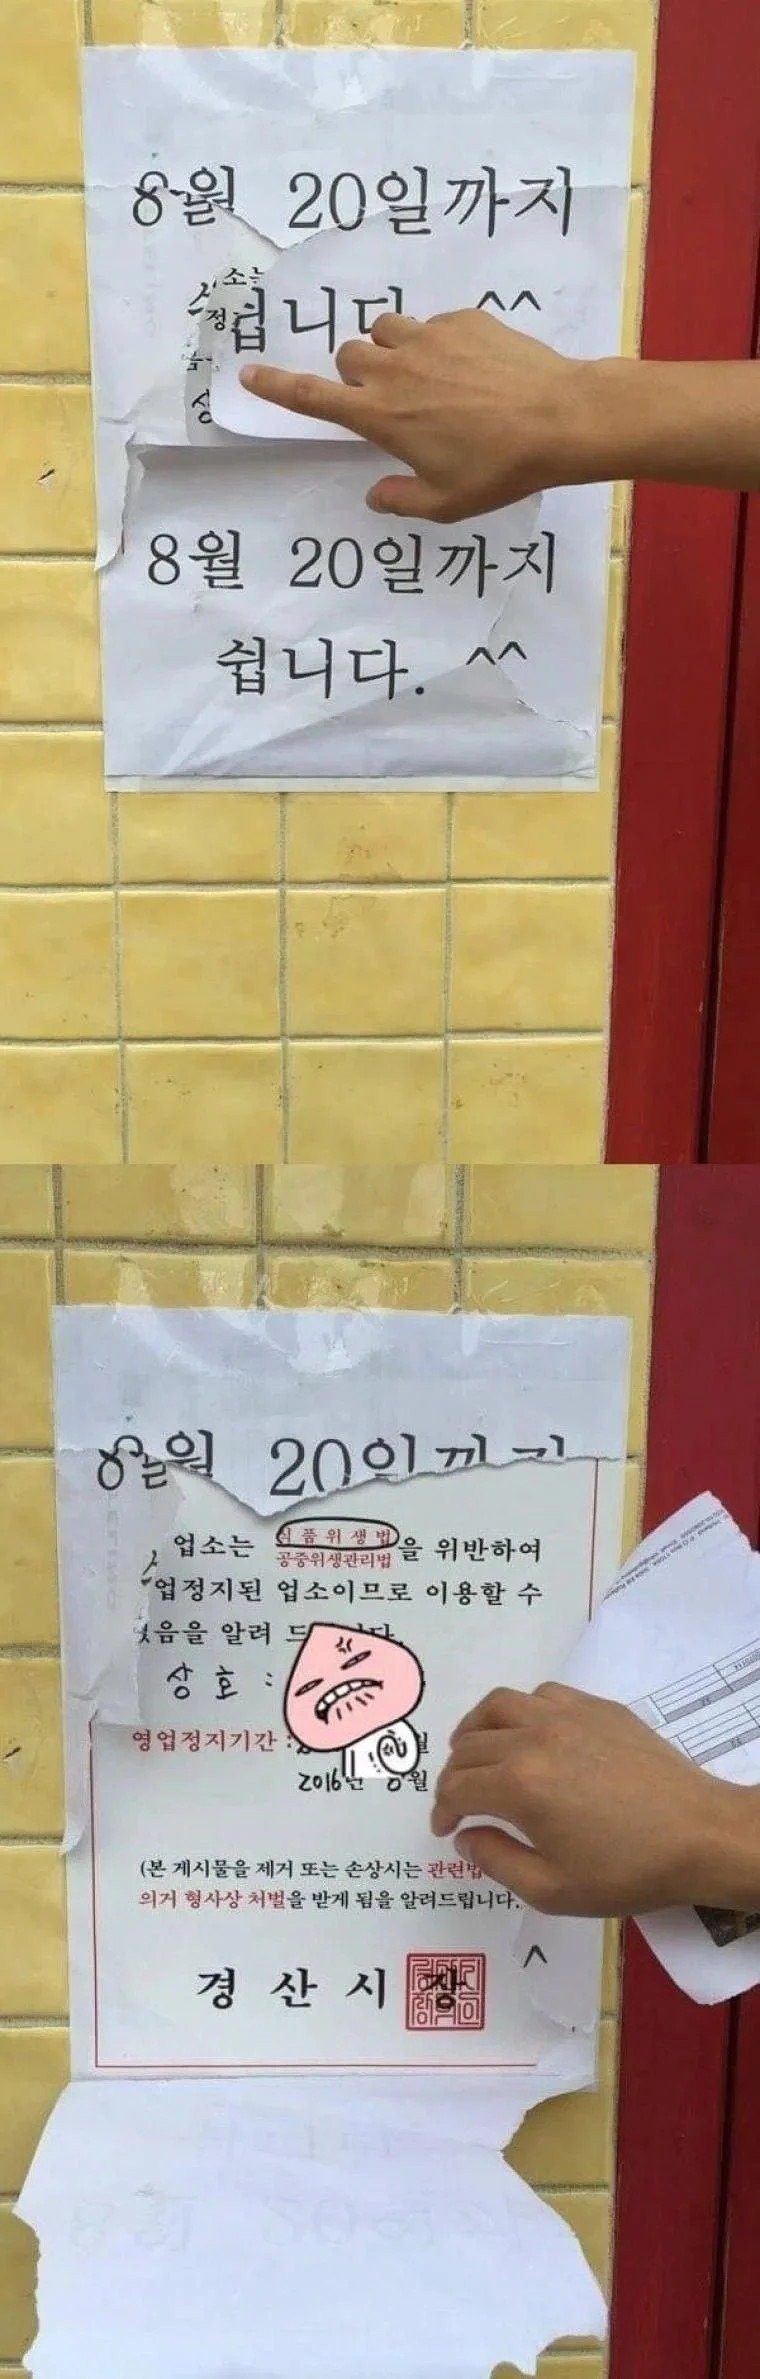 8월 20일까지
소는
쉽니다. ^^
정
상
8월 20일까지
쉽니다. ^^
8월 20일까지
업소는 식품위생법
공중위생관리법 을 위반하여
업정지된 업소이므로 이용할 수
음을 알려 드
상 호 :
영업정지기간 :
2016년 월
(본 게시물을 제거 또는 손상시는 관련법
의거 형사상 처벌을 받게 됨을 알려드립니다.
^
경 산 시 장